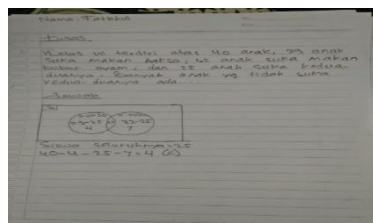 Nama: Fatkhul
Tugas
Kelas VI terdiri atas 40 anak, 29 anak
suka makan bakso, anak suka makan
bubur ayam, dan 25 anak suka kedua
duanya. Banyak anak yg tidak suka
kedua duanya ada...
Jawab
4
7
Siswa Seluruhnya = 25
40-4-25-7=4 (C)